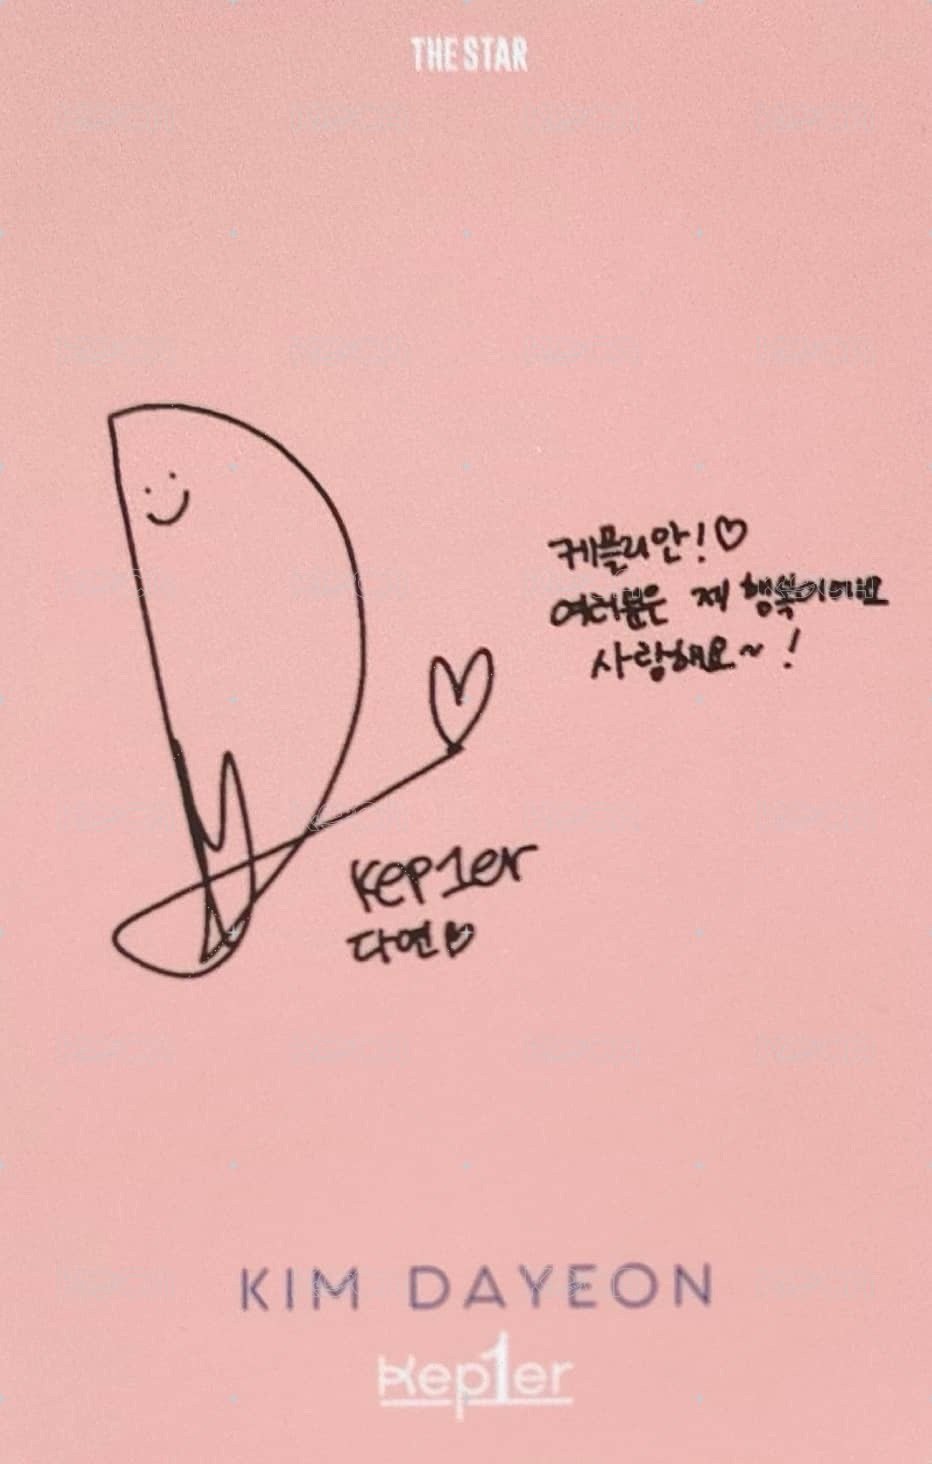 THE STAR
케플리안!♡
여러분은 제 행복이에요
사랑해요~!
Kep1er
다연♡
KIM DAYEON
Kep1er